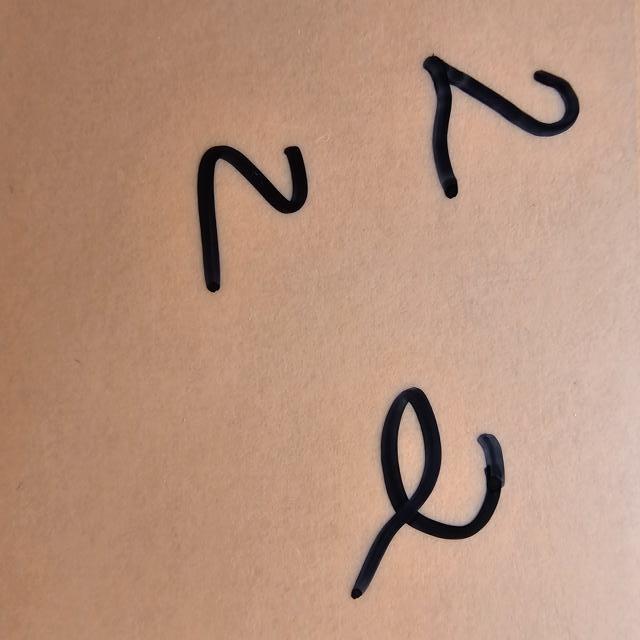 2 2
2